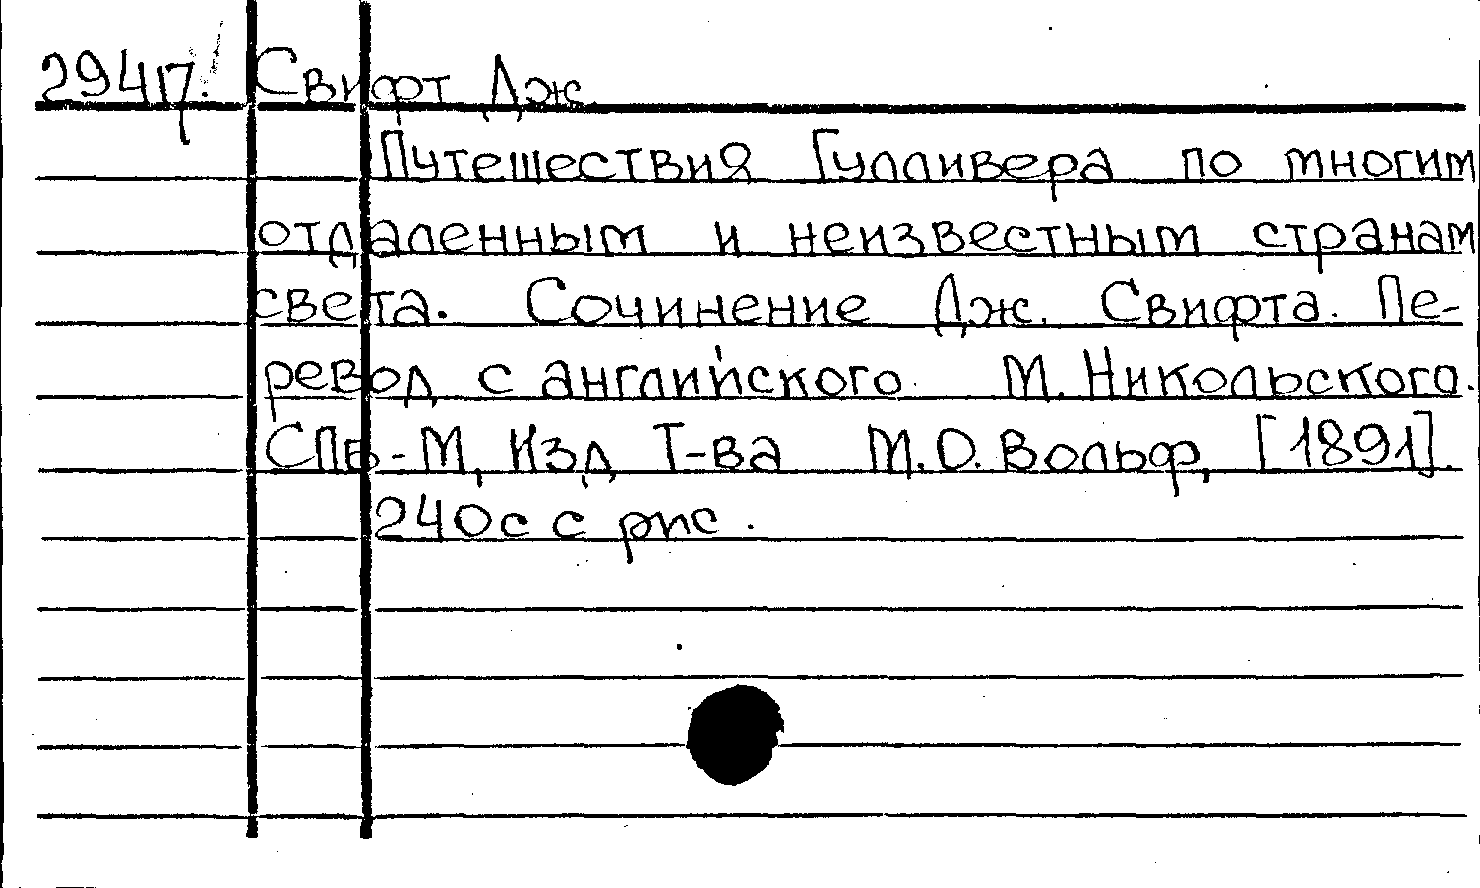 29417. Свифт Дж.
Путешествия Гулливера по многим
отдаленным и неизвестным странам
света. Сочинение Дж. Свифта. Пе-
ревод с английского М. Никольского.
СПб-М, Изд Т-ва М.О. Вольф, [1891].
240с с рис.